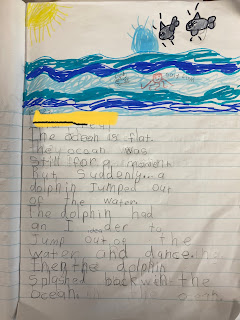 The ocean is flat.
The ocean was
still for a moment.
But Suddenly... a
dolphin Jumped out
of the water.
The dolphin had
an I der to
Jump out of the
water and dance.
Then the dolphin
splashed back the
ocean.